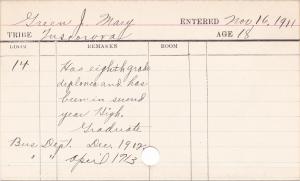 Green J. Mary ENTERED Nov 16, 1911
TRIBE Tuscarora AGE 18
REMARKS ROOM
14 Has eighth grade
diploma and has
been in second
year High.
Graduate
Bus. Dept. Dec 1912
" " April 1913